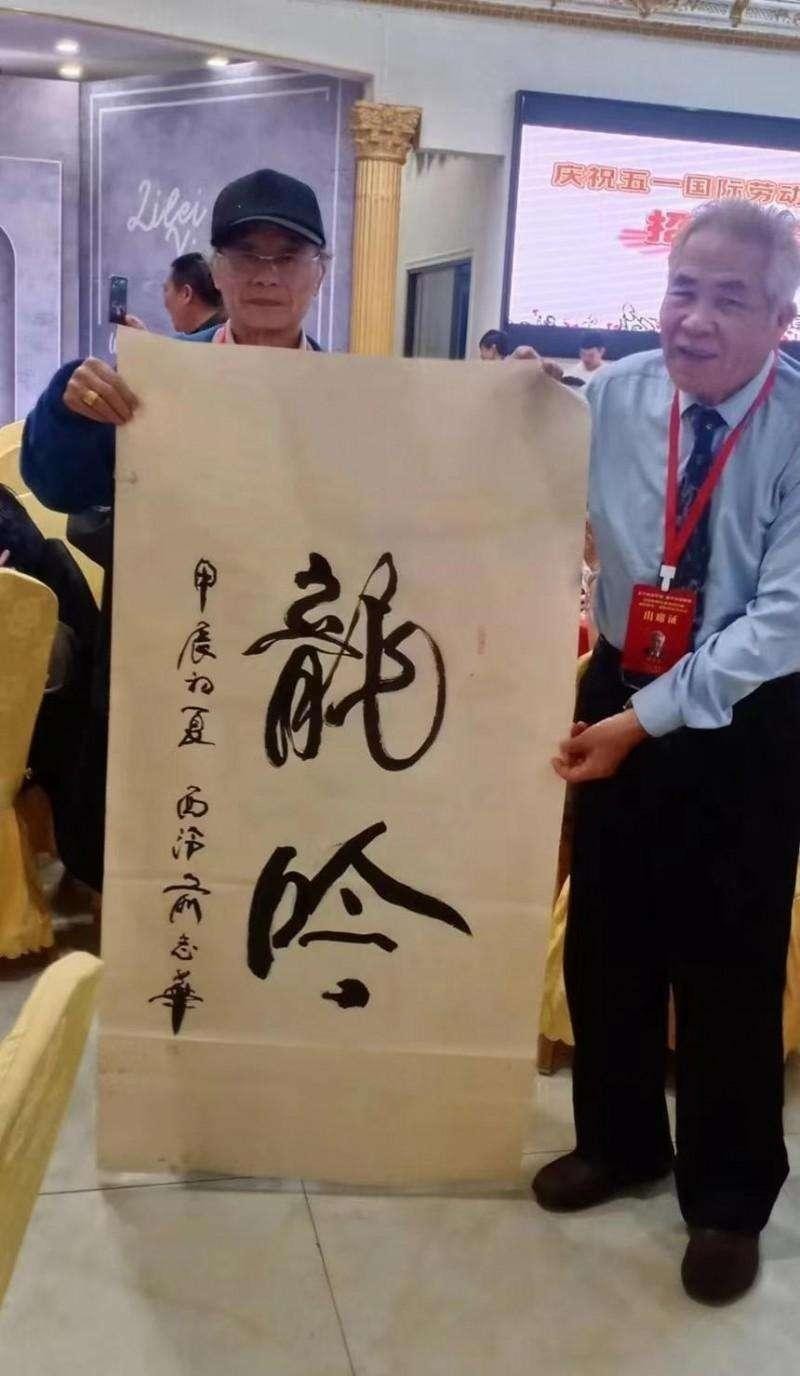 龍吟
甲辰初夏 西泠俞志華
庆祝五一国际劳动
招
出席证
Lilei